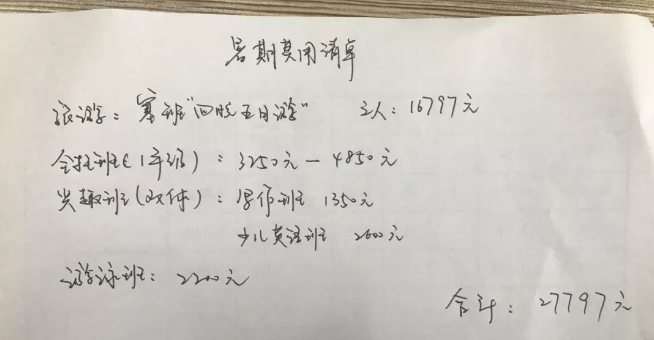 暑期费用清单
旅游:塞班“四晚五日游” 三人:16797元
全托班(1年级):3250元—4850元
兴趣班(文体):写作班 1350元
少儿英语班 2600元
游泳班:2200元
合计:27797元